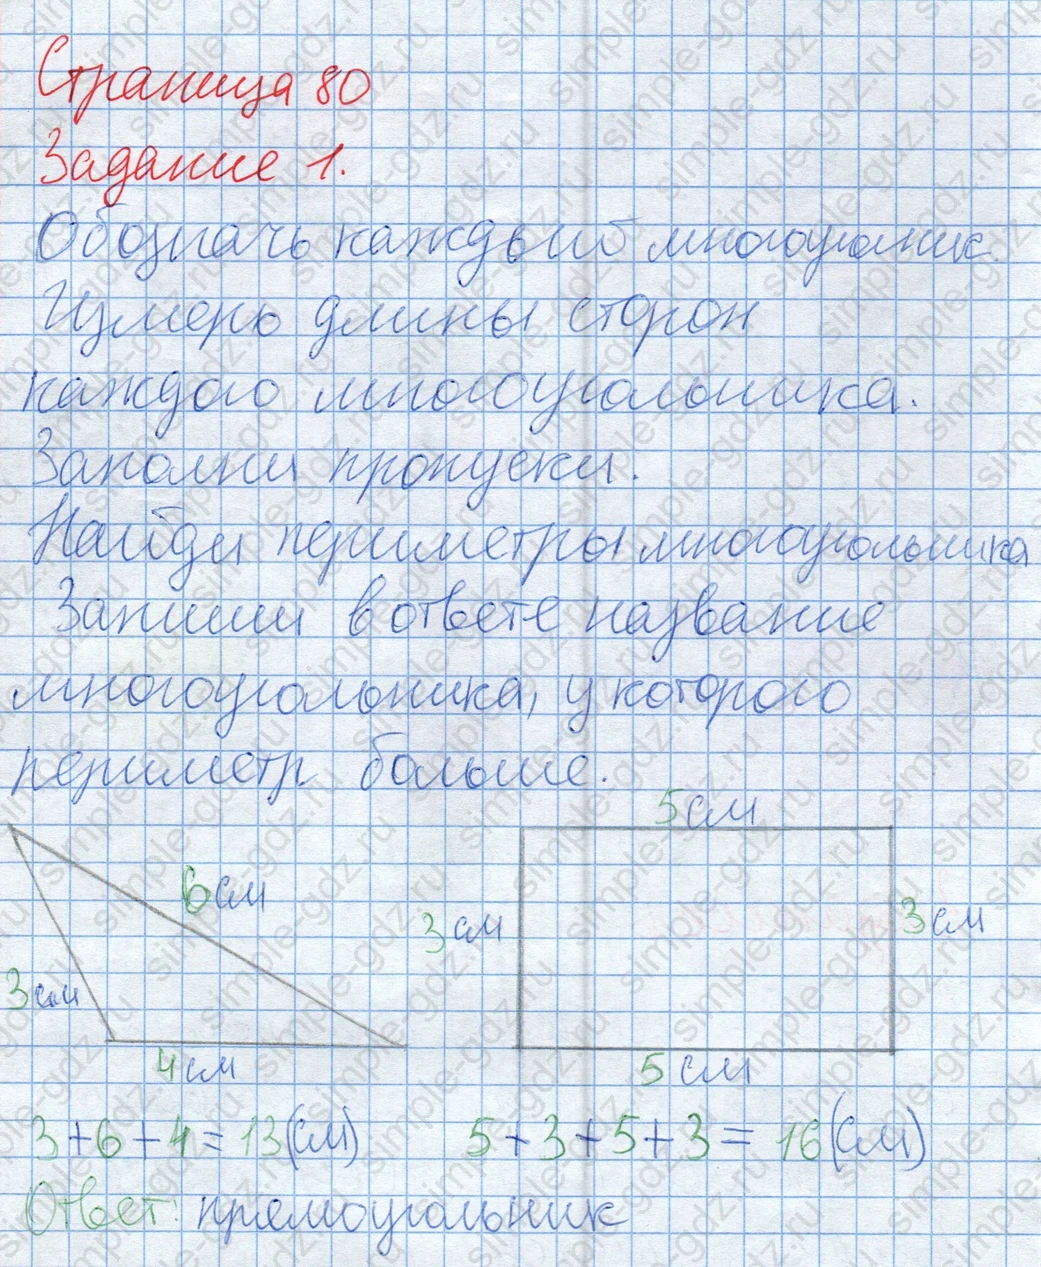 Страница 80
Задание 1.
Обозначь каждый многоугольник.
Измерь длины сторон
каждого многоугольника.
Заполни пропуски.
Найди периметры многоугольника
Запиши в ответе название
многоугольника, у которого
периметр больше.
5 см
6 см
3 см
3 см
3 см
4 см
5 см
3+6+4=13(см)
5+3+5+3=16(см)
Ответ: прямоугольник
simple-gdz.ru